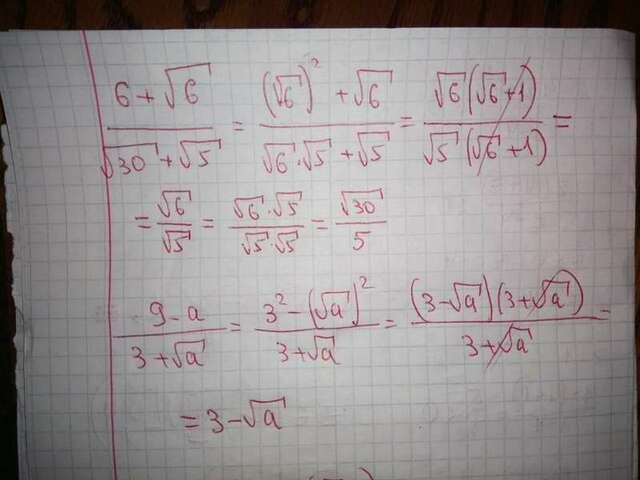 (6 + √6)/(√30 + √5) = ((√6)² + √6)/(√6·√5 + √5) = (√6(√6+1))/(√5(√6+1)) =
= √6/√5 = (√6·√5)/(√5·√5) = √30/5
(9-a)/(3+√a) = (3² - (√a)²)/(3+√a) = ((3-√a)(3+√a))/(3+√a) =
= 3-√a